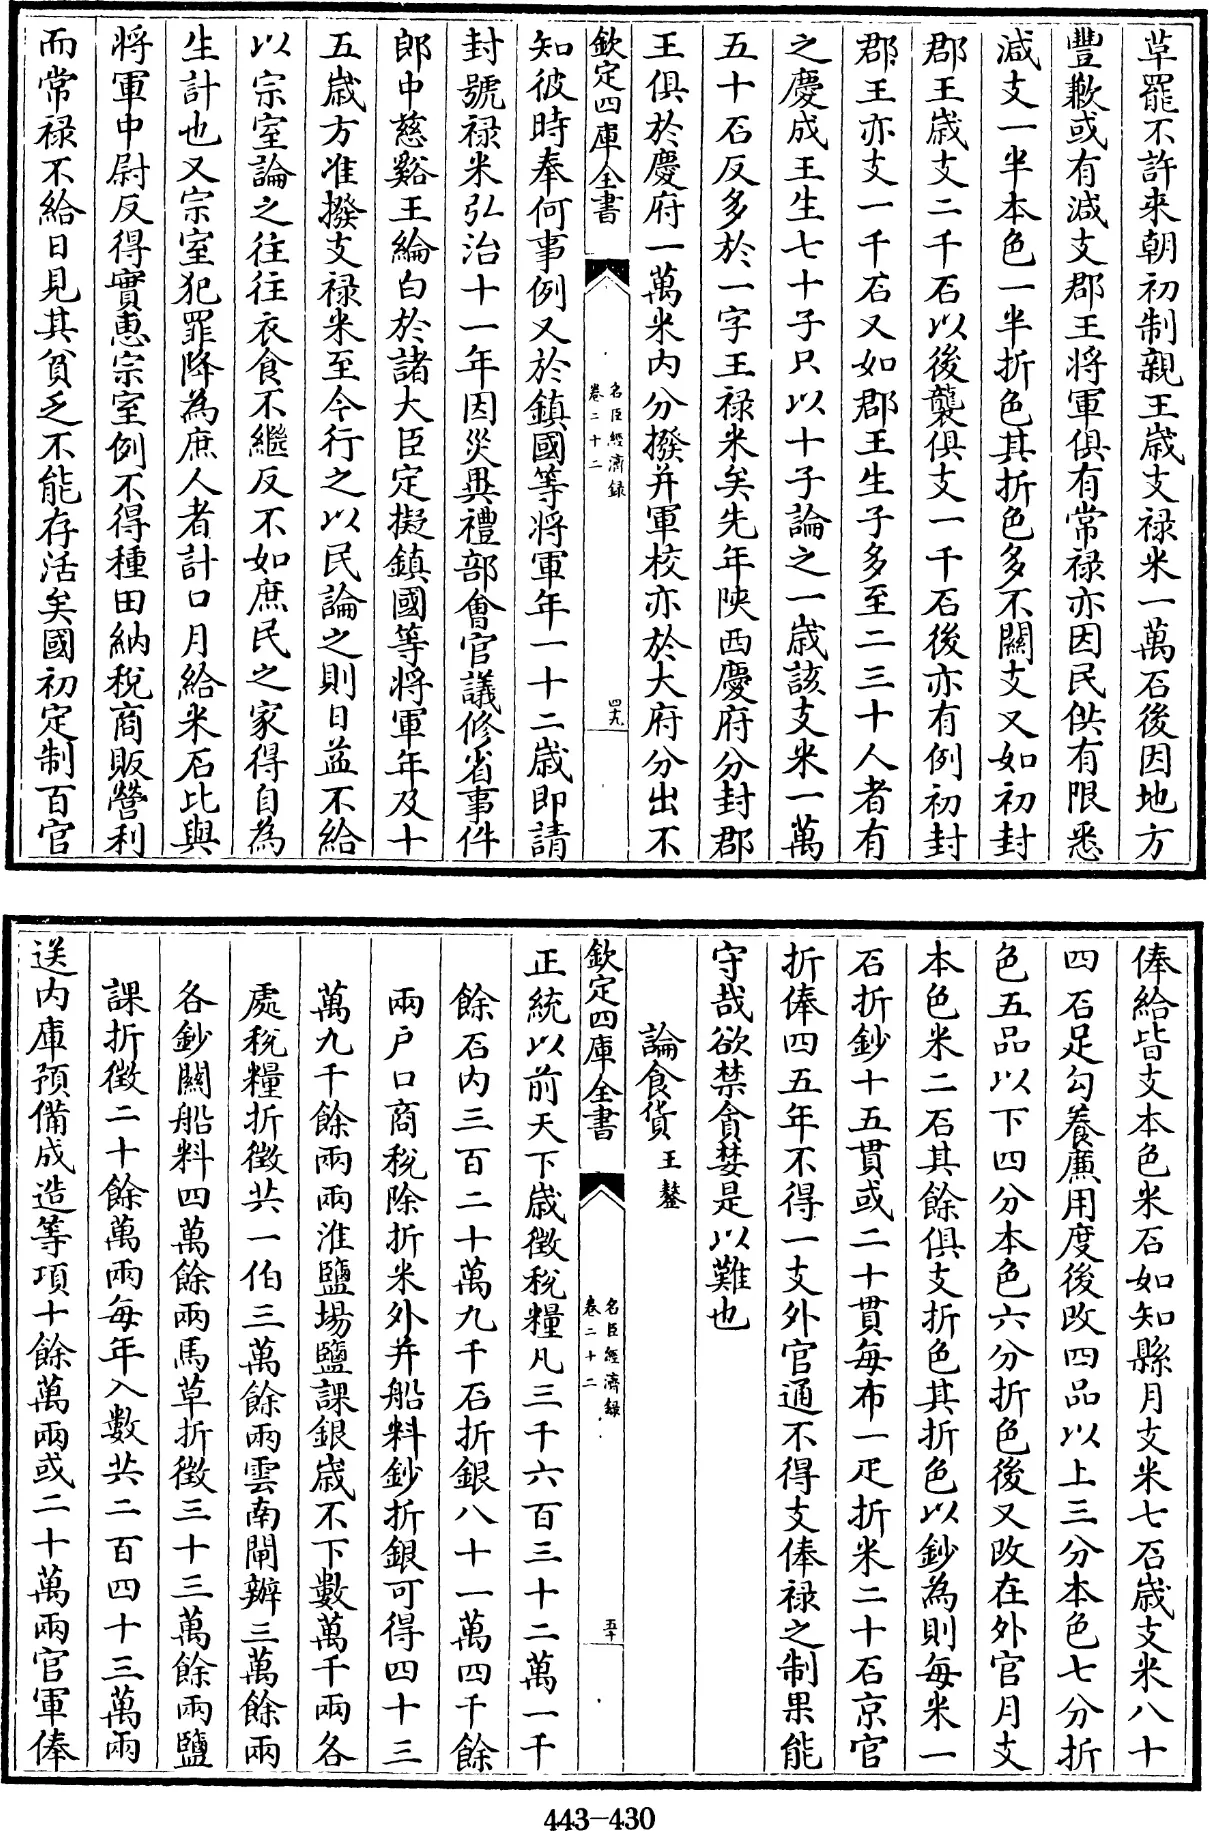 草罷不許来朝初制親王歳支禄米一萬石後因地方
豐歉或有減支郡王将軍俱有常禄亦因民供有限悉
減支一半本色一半折色其折色多不關支又如初封
郡王歳支二千石以後襲俱支一千石後亦有例初封
郡王亦支一千石又如郡王生子多至二三十人者有
之慶成王生七十子只以十子論之一歳該支米一萬
五十石反多於一字王禄米矣先年陜西慶府分封郡
王俱於慶府一萬米内分撥并軍校亦於大府分出不
欽定四庫全書
名臣經濟録
卷二十二
四九
知彼時奉何事例又於鎮國等将軍年一十二歳即請
封號禄米弘治十一年因災異禮部會官議修省事件
郎中慈谿王綸白於諸大臣定擬鎮國等将軍年及十
五歳方准撥支禄米至今行之以民論之則日益不給
以宗室論之往往衣食不繼反不如庶民之家得自為
生計也又宗室犯罪降為庶人者計口月給米石比與
将軍中尉反得實惠宗室例不得種田納稅商販營利
而常禄不給日見其貧乏不能存活矣國初定制百官
俸給皆支本色米石如知縣月支米七石歳支米八十
四石足勾養廉用度後改四品以上三分本色七分折
色五品以下四分本色六分折色後又改在外官月支
本色米二石其餘俱支折色其折色以鈔為則每米一
石折鈔十五貫或二十貫每布一疋折米二十石京官
折俸四五年不得一支外官通不得支俸禄之制果能
守哉欲禁貪婪是以難也
論食貨 王鏊
欽定四庫全書
名臣經濟録
卷二十二
五十
正統以前天下歳徵稅糧凡三千六百三十二萬一千
餘石内三百二十萬九千石折銀八十一萬四千餘
兩户口商稅除折米外并船料鈔折銀可得四十三
萬九千餘兩兩淮鹽場鹽課銀歳不下數萬千兩各
處稅糧折徵共一伯三萬餘兩雲南閘辦三萬餘兩
各鈔關船料四萬餘兩馬草折徵三十三萬餘兩鹽
課折徵二十餘萬兩每年入數共二百四十三萬兩
送内庫預備成造等項十餘萬兩或二十萬兩官軍俸
443-430